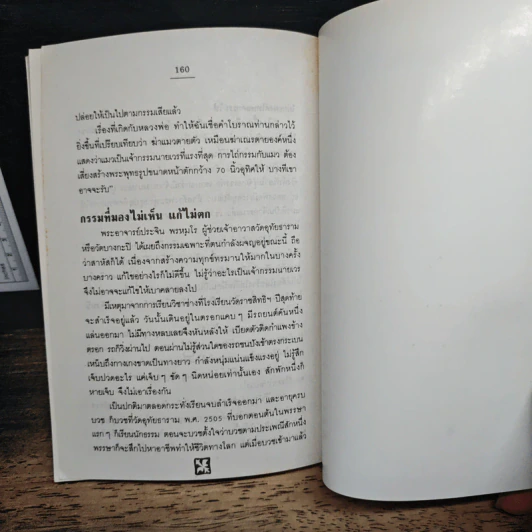 160
ปล่อยให้เป็นไปตามกรรมเสียแล้ว
เรื่องที่เกิดกับหลวงพ่อ ทำให้ฉันเชื่อคำโบราณท่านกล่าวไว้
ยิ่งขึ้นที่เปรียบเทียบว่า ฆ่าแมวตายตัว เหมือนฆ่าเณรตายองค์หนึ่ง
แสดงว่าแมวเป็นเจ้ากรรมนายเวรที่แรงที่สุด การไถ่กรรมกับแมว ต้อง
เสี่ยงสร้างพระพุทธรูปขนาดหน้าตักกว้าง 70 นิ้วอุทิศให้ บางทีเขา
อาจจะรับ"
กรรมที่มองไม่เห็น แก้ไม่ตก
พระอาจารย์ประจิน พรหมฺโร ผู้ช่วยเจ้าอาวาสวัดอุทัยธาราม
หรือวัดบางกะปิ ได้เผยถึงกรรมเฉพาะที่ตนกำลังผจญอยู่ขณะนี้ ถือ
ว่าสาหัสก็ได้ เนื่องจากสร้างความทุกข์ทรมานให้มากในบางครั้ง
บางคราว แก้ไขอย่างไรก็ไม่ดีขึ้น ไม่รู้ว่าอะไรเป็นเจ้ากรรมนายเวร
จึงไม่อาจจะแก้ไขให้เบาคลายลงไป
มีเหตุมาจากการเรียนวิชาช่างที่โรงเรียนวัดราชสิทธิฯ ปีสุดท้าย
จะสำเร็จอยู่แล้ว วันนั้นเดินอยู่ในตรอกแคบๆ มีรถยนต์คันหนึ่ง
แล่นออกมา ไม่มีทางหลบเลยจึงหันหลังให้ เบียดตัวติดกำแพงข้าง
ตรอก รถก็วิ่งผ่านไป ตอนผ่านไม่รู้ส่วนใดของรถชนปังเข้าตรงกระเบน
เหน็บถึงกางเกงขาดเป็นทางยาว กำลังหนุ่มแน่นแข็งแรงอยู่ ไม่รู้สึก
เจ็บปวดอะไร แค่เจ็บๆ ขัดๆ นิดหน่อยเท่านั้นเอง สักพักหนึ่งก็
หายเจ็บ จึงไม่เอาเรื่องกัน
เป็นปกติมาตลอดกระทั่งเรียนจบสำเร็จออกมา และอายุครบ
บวช ก็บวชที่วัดอุทัยธาราม พ.ศ. 2505 ที่บอกตอนต้นในพรรษา
แรกๆ ก็เรียนนักธรรม ตอนจะบวชตั้งใจว่าบวชตามประเพณีสักหนึ่ง
พรรษาก็จะสึกไปหาอาชีพทำใช้ชีวิตทางโลก แต่เมื่อบวชเข้ามาแล้ว